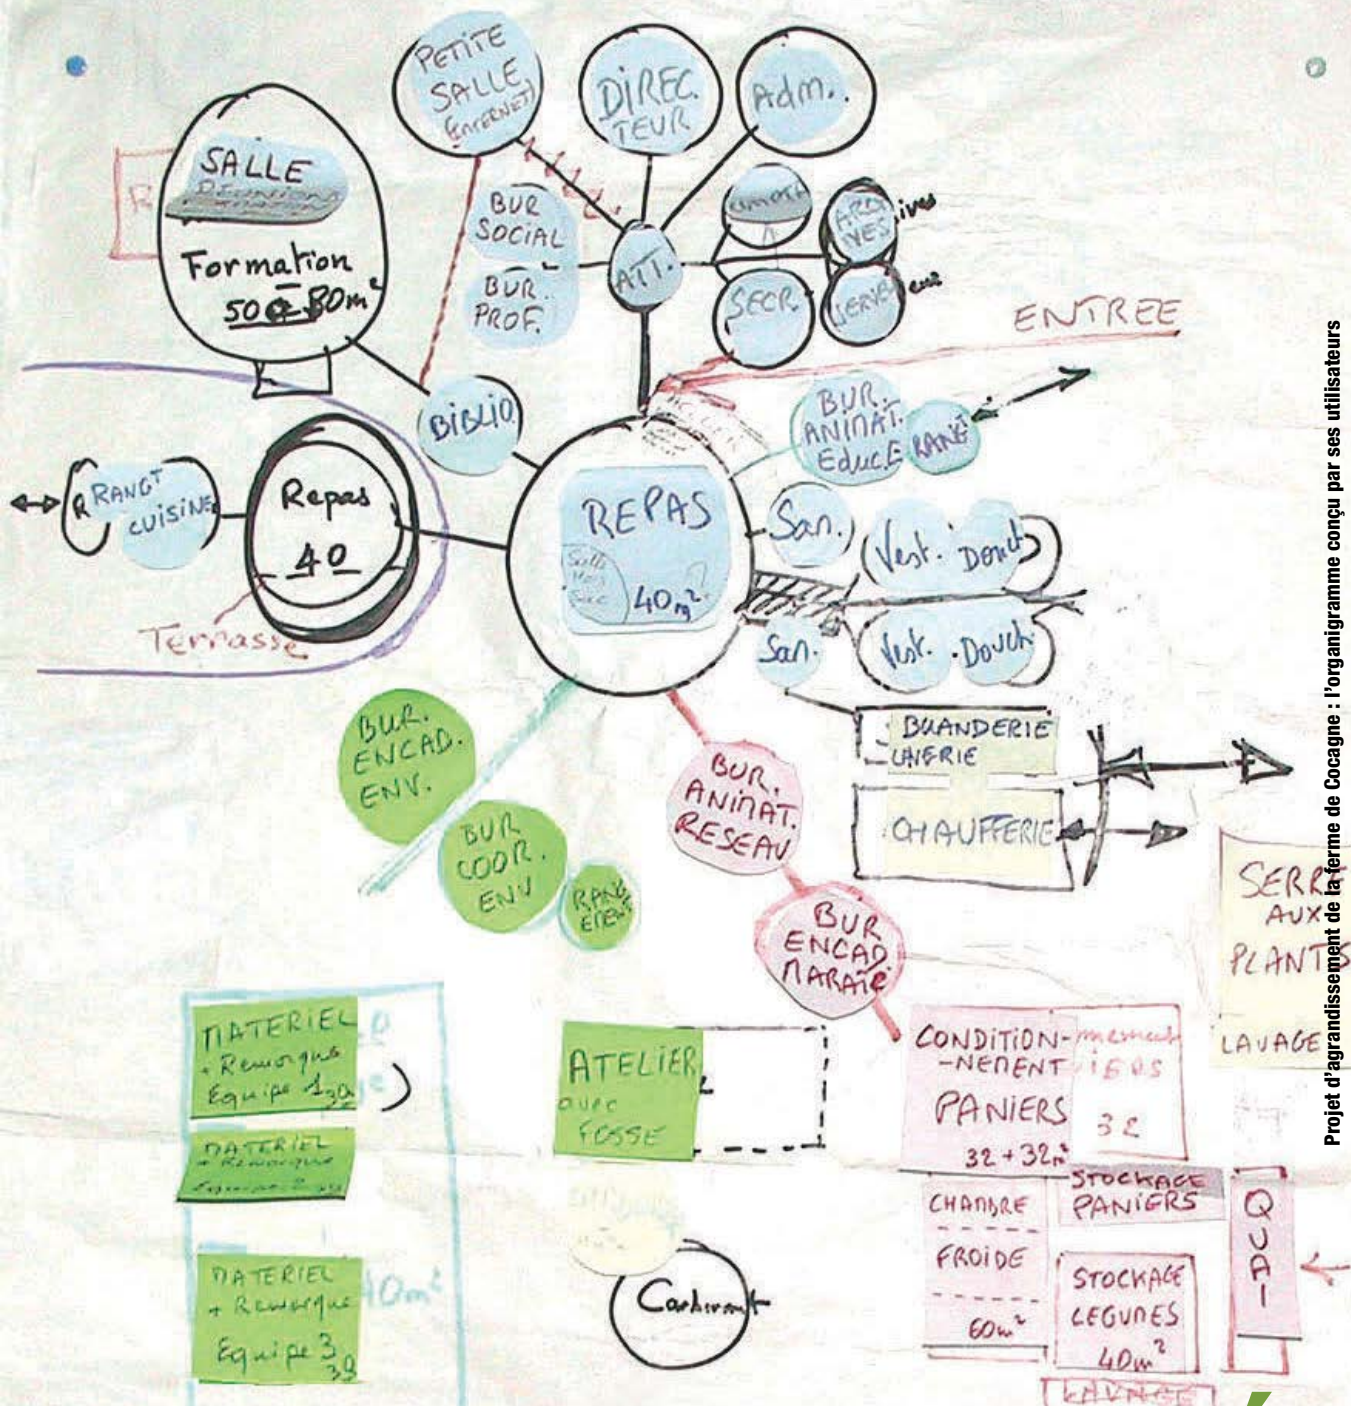 PETITE
SALLE
(INTERNET)
DIREC.
TEUR
Adm.
SALLE
Formation
50 80m²
BUR
SOCIAL
BUR.
PROF.
ATT.
ARCHIVES
SECR
SERVE
ENTREE
BIBLIO
BUR.
ANIMAT.
EducE
RANGT
RANGT
CUISINE
Repas
40
Terrasse
REPAS
Salle
40m²
San.
Vest. Douch
San.
Vest. Douch
BUANDERIE
CHAUFFERIE
BUR.
ENCAD.
ENV.
BUR
COOR.
ENV
BUR.
ANIMAT.
RESEAU
BUR
ENCAD
MARAÎC
SERRE
AUX
PLANTS
LAVAGE
MATERIEL
+ Remorque
Equipe 1
MATERIEL
+ Remorque
MATERIEL
+ Remorque
Equipe 3
40m²
ATELIER
avec
FOSSE
Carburant
CONDITION-
-NEMENT
PANIERS
32+32m²
32
STOCKAGE
PANIERS
CHAMBRE
FROIDE
60m²
STOCKAGE
LEGUMES
40m²
LAVAGE
QUAI
Projet d'agrandissement de la ferme de Cocagne : l'organigramme conçu par ses utilisateurs